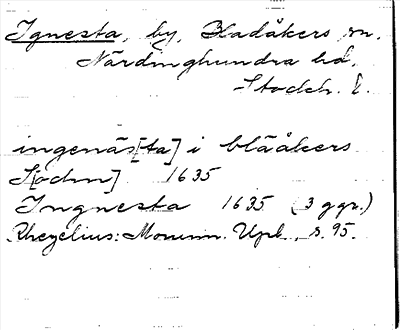 Ignesta, by, Bladåkers sn.
Närdinghundra hd.
Stockh. l.
ingenäs[ta] i blååkers
S[ochn] 1635
Ingnesta 1635 (3 ggr.)
Rhezelius: Monum. Upl., s. 95.